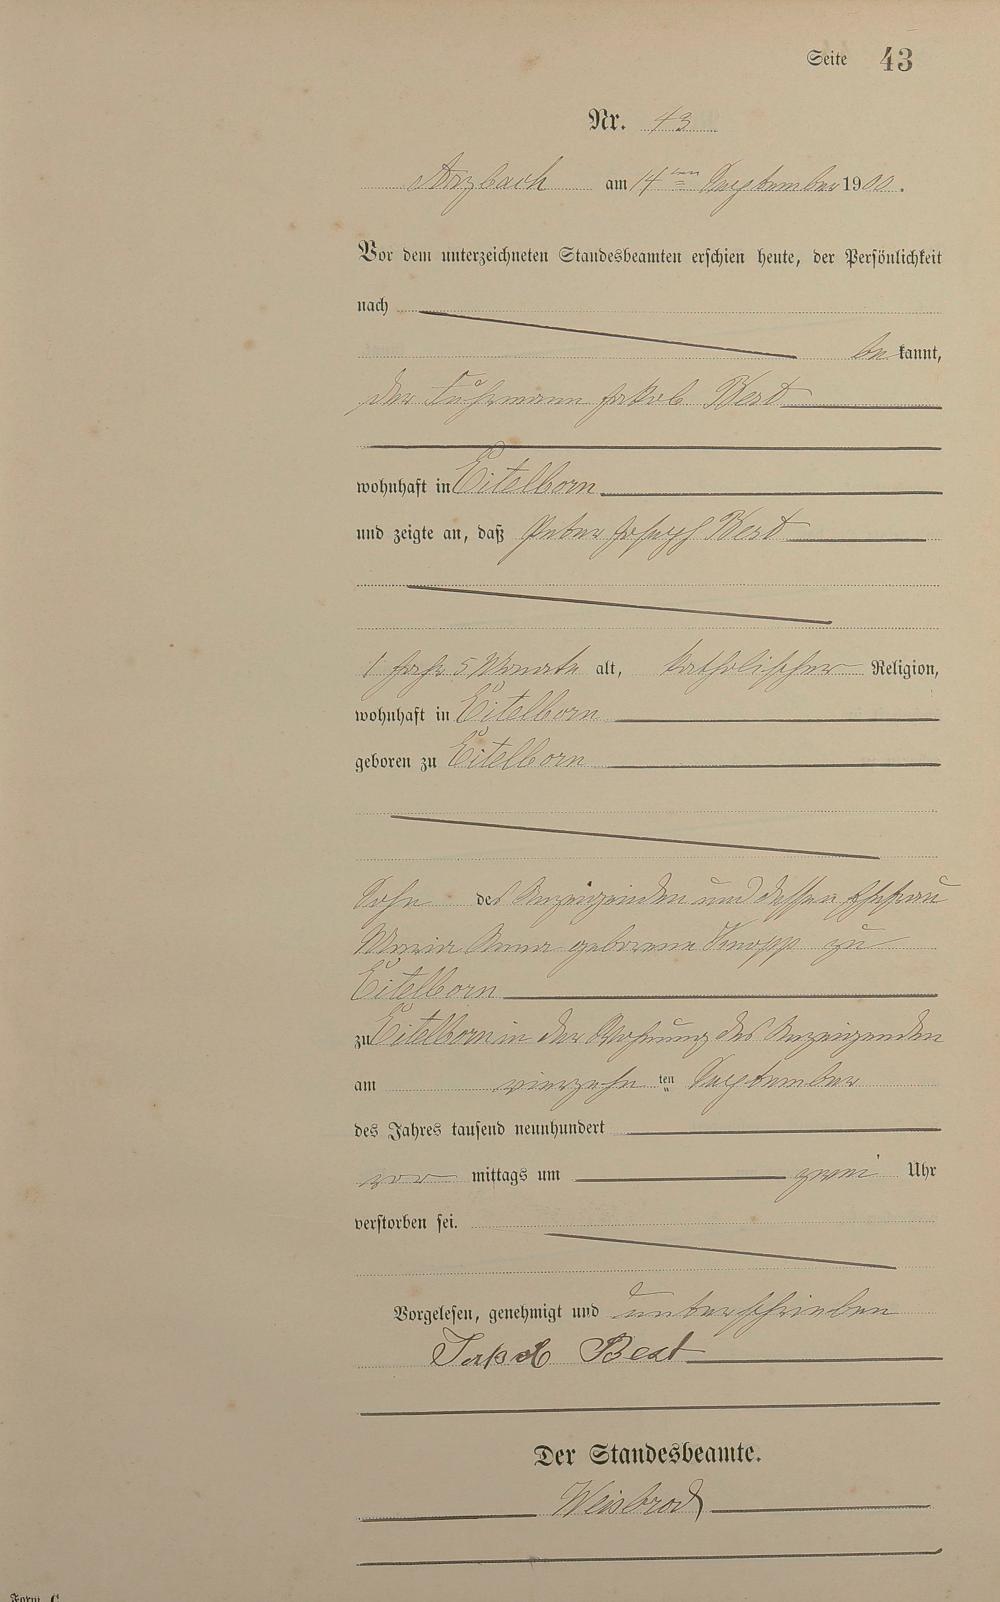 Seite 43
Nr. 43
Arzbach am 14ten September 1900.
Vor dem unterzeichneten Standesbeamten erschien heute, der Persönlichkeit
nach
be kannt,
der Fuhrmann Jakob Best
wohnhaft in Eitelborn
und zeigte an, daß Peter Joseph Best
1 Jahr 5 Monate alt, katholischer Religion,
wohnhaft in Eitelborn
geboren zu Eitelborn
Sohn des Anzeigenden und dessen Ehefrau
Maria Anna geborene Knopp zu
Eitelborn
zu Eitelborn in der Wohnung des Anzeigenden
am vierzehn ten September
des Jahres tausend neunhundert
vor mittags um zwei Uhr
verstorben sei.
Vorgelesen, genehmigt und unterschrieben
Jakob Best
Der Standesbeamte.
Weisbrod
Form. C